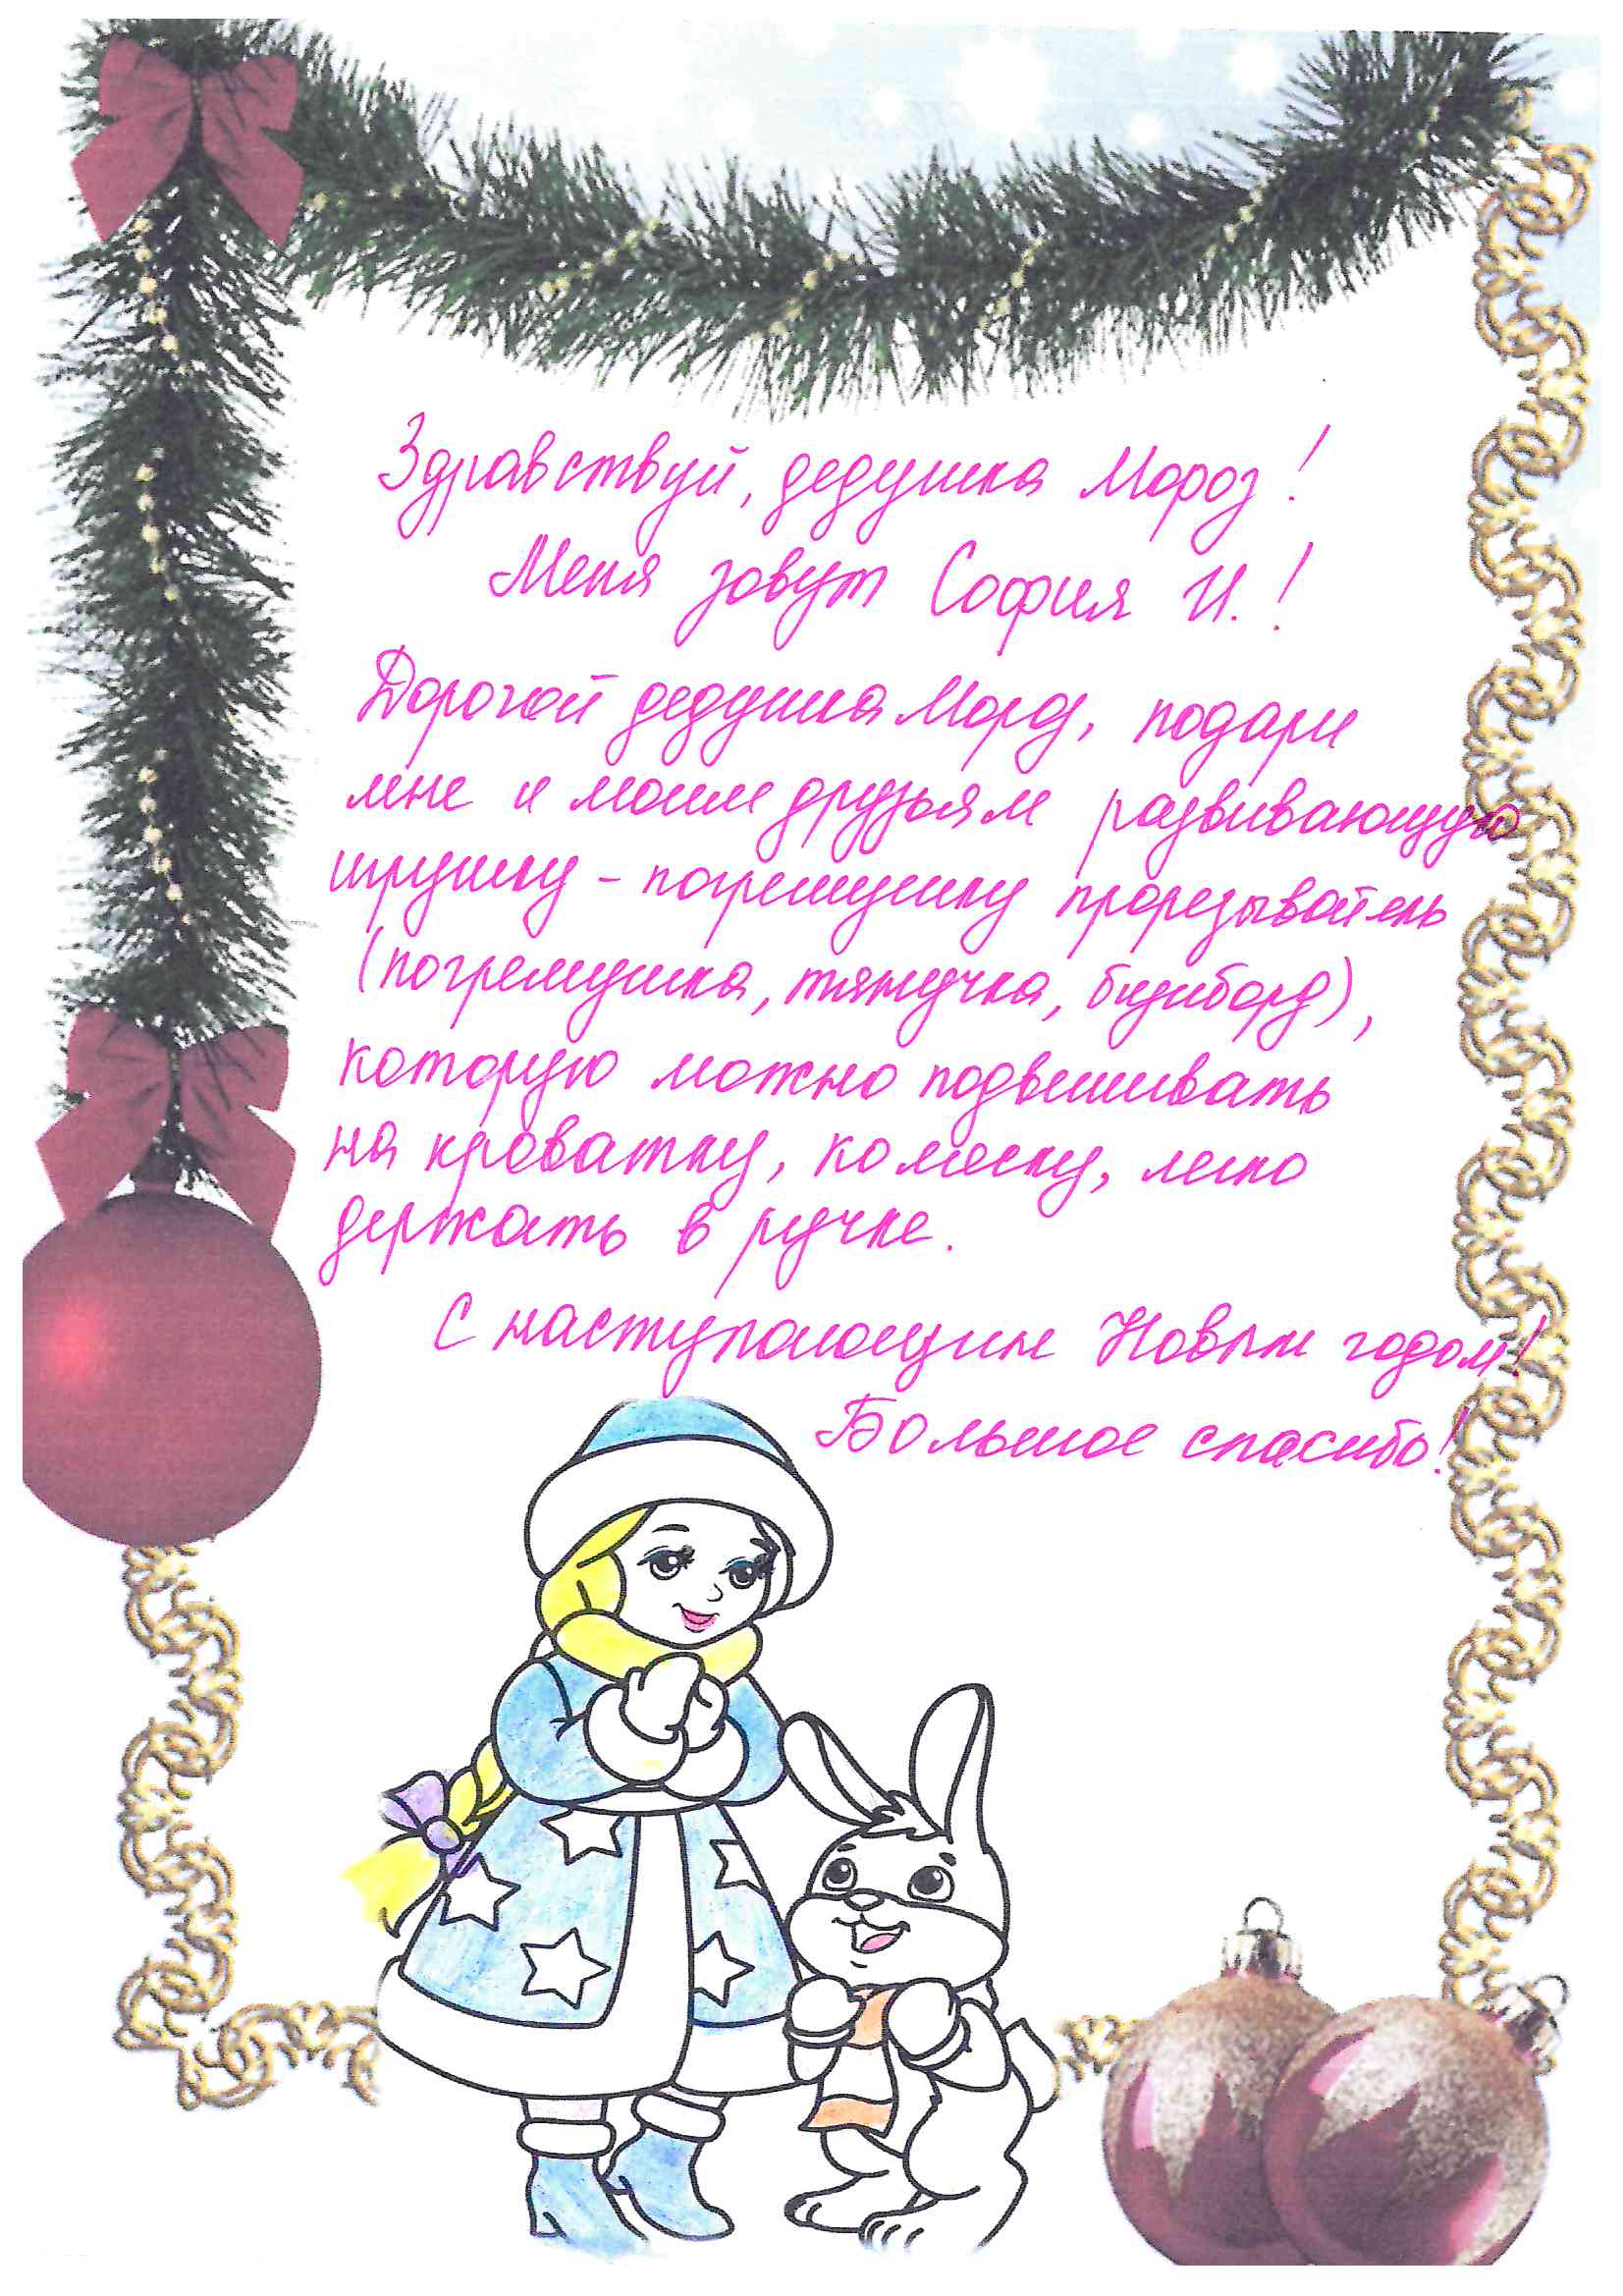 Здравствуй, дедушка Мороз!
Меня зовут София И.!
Дорогой дедушка Мороз, подари
мне и моим друзьям развивающую
игрушку - погремушку прорезыватель
(погремушка, тянучка, бизиборд),
которую можно подвешивать
на кроватку, коляску, легко
держать в ручке.
С наступающим Новым годом!
Большое спасибо!